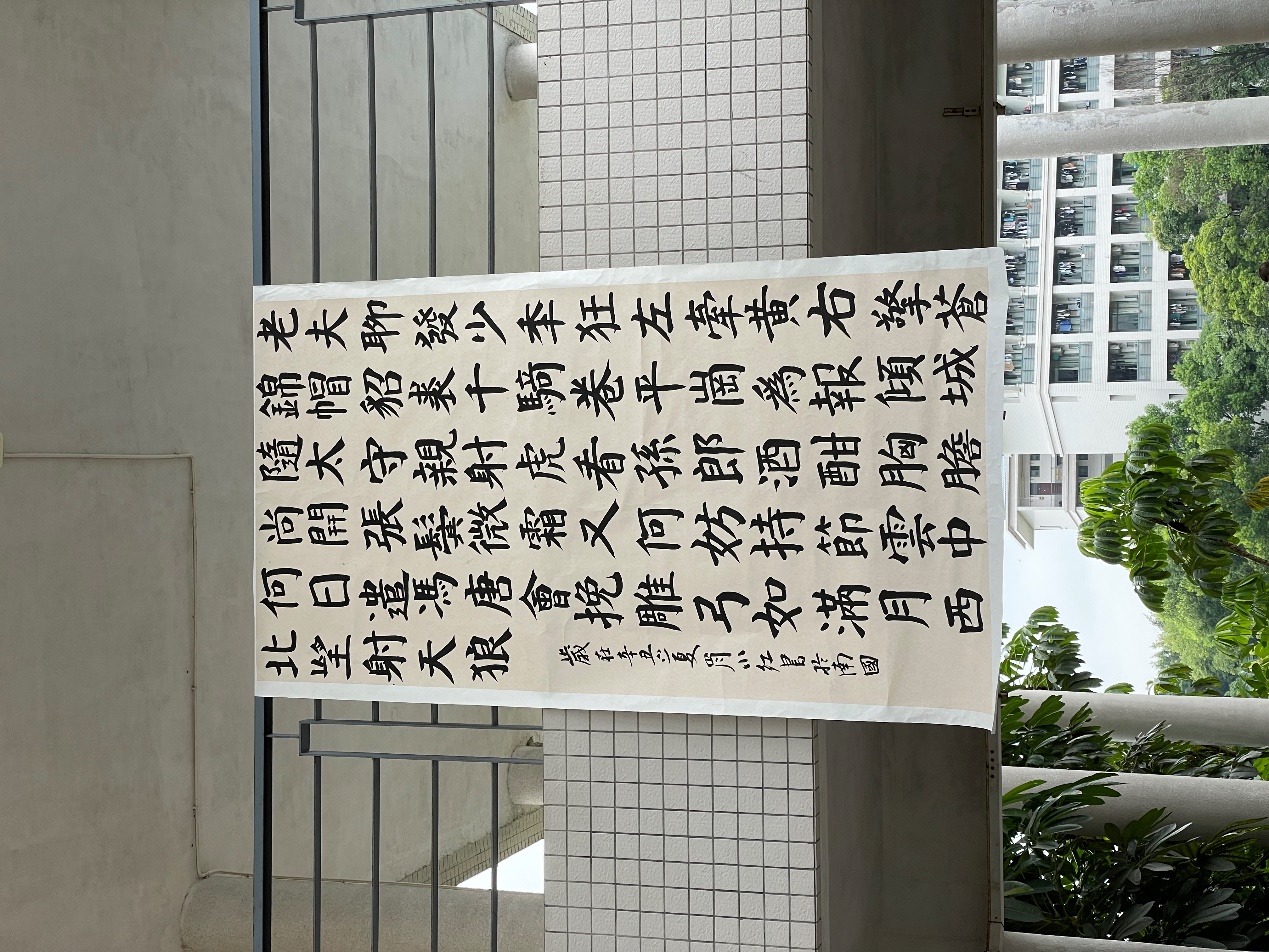 老夫聊發少秊狂左牽黃右擎蒼
錦帽貂裘千騎卷平崗為報傾城
隨太守親射虎看孫郎酒酣胸膽
尚開張鬢微霜又何妨持節雲中
何日遣馮唐會挽雕弓如滿月西
北望射天狼
歲在辛丑之夏書於南國